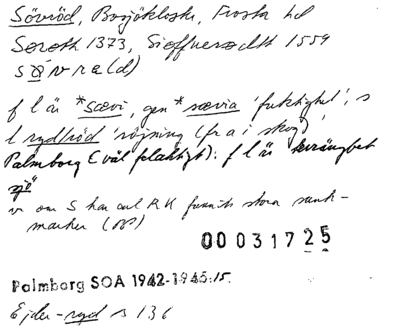 Sövröd, Bosjökloster, Frosta hd
Søroth 1373, Sieffuerødth 1559
søvra(d)
f l är *sævi, gen *sævia 'fuktighet', s
l ryd/röd 'röjning (fr a i skog)'
Palmborg (väl felaktigt): f l är kvinnobet
v om S har enl RK funnits stora sank-
marker (OP)
00031725
Palmborg SOA 1942-1945:15.
Ejder-ryd s 136